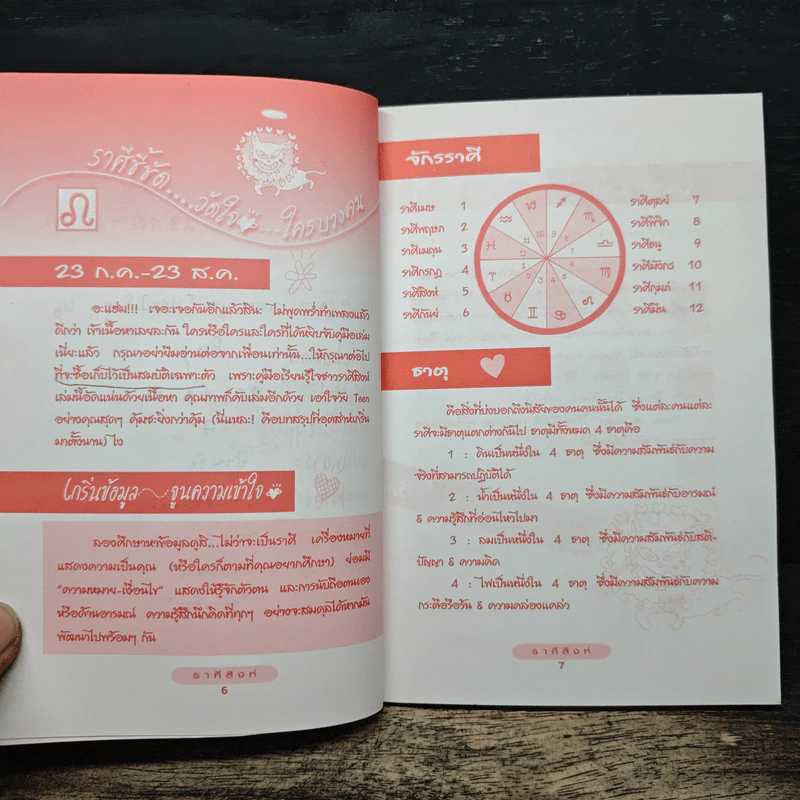 ราศีชี้ชัด....วัดใจ....ใครบางคน
23 ก.ค.-23 ส.ค.
อะแฮ่ม!!! เจอะเจอกันอีกแล้วสินะ ไม่พูดพร่ำทำเพลงแล้ว
ดีกว่า เข้าเนื้อหาเลยละกัน ใครหรือใครและใครที่ได้หยิบจับคู่มือเล่ม
เนี่ยะแล้ว กรุณาอย่ายืมอ่านต่อจากเพื่อนเท่านั้น...ให้กรุณาต่อไป
ที่จะซื้อเก็บไว้เป็นสมบัติเฉพาะตัว เพราะคู่มือเรียนรู้ใจชาวราศีสิงห์
เล่มนี้อัดแน่นด้วยเนื้อหา คุณภาพก็คับเล่มอีกด้วย เอาใจวัย Teen
อย่างคุณสุดๆ คุ้มซะยิ่งกว่าคุ้ม (นี่แหละ! คือบทสรุปที่อุตส่าห์เกริ่น
มาตั้งนาน) ไง
เกริ่นข้อมูล จูนความเข้าใจ
ลองศึกษาหาข้อมูลดูสิ...ไม่ว่าจะเป็นราศี เครื่องหมายที่
แสดงความเป็นคุณ (หรือใครก็ตามที่คุณอยากศึกษา) ย่อมมี
"ความหมาย-เงื่อนไข" แสดงให้รู้จักตัวตน และการนับถือตนเอง
หรือด้านอารมณ์ ความรู้สึกนึกคิดที่ทุกๆ อย่างจะสมดุลได้หากมัน
พัฒนาไปพร้อมๆ กัน
ราศีสิงห์
6
จักรราศี
ราศีเมษ 1
ราศีพฤษภ 2
ราศีเมถุน 3
ราศีกรกฎ 4
ราศีสิงห์ 5
ราศีกันย์ 6
ราศีตุลย์ 7
ราศีพิจิก 8
ราศีธนู 9
ราศีมังกร 10
ราศีกุมภ์ 11
ราศีมีน 12
ธาตุ
คือสิ่งที่บ่งบอกถึงนิสัยของคนคนนั้นได้ ซึ่งแต่ละคนแต่ละ
ราศีจะมีธาตุแตกต่างกันไป ธาตุมีทั้งหมด 4 ธาตุคือ
1 : ดินเป็นหนึ่งใน 4 ธาตุ ซึ่งมีความสัมพันธ์กับความ
จริงที่สามารถปฏิบัติได้
2 : น้ำเป็นหนึ่งใน 4 ธาตุ ซึ่งมีความสัมพันธ์กับอารมณ์
& ความรู้สึกที่อ่อนไหวไปมา
3 : ลมเป็นหนึ่งใน 4 ธาตุ ซึ่งมีความสัมพันธ์กับสติ-
ปัญญา & ความคิด
4 : ไฟเป็นหนึ่งใน 4 ธาตุ ซึ่งมีความสัมพันธ์กับความ
กระตือรือร้น & ความคล่องแคล่ว
ราศีสิงห์
7